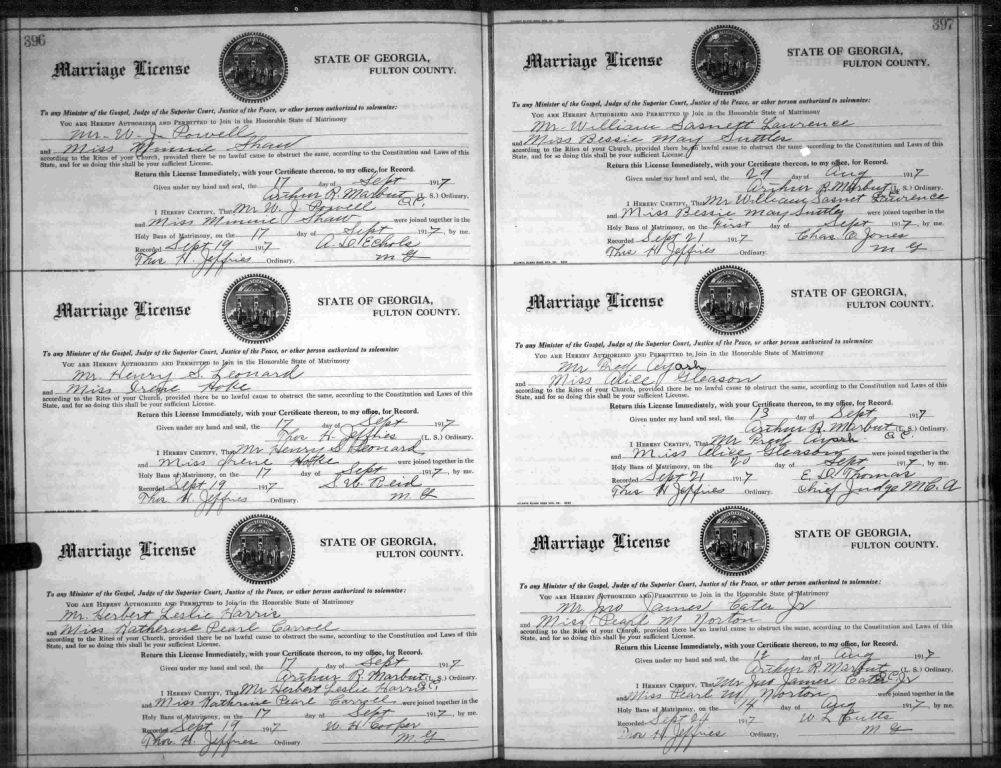 396
Marriage License
STATE OF GEORGIA,
FULTON COUNTY.
To any Minister of the Gospel, Judge of the Superior Court, Justice of the Peace, or other person authorized to solemnize:
YOU ARE HEREBY AUTHORIZED AND PERMITTED to Join in the Honorable State of Matrimony
Mr. W. J. Powell
and Miss Minnie Shaw
according to the Rites of your Church, provided there be no lawful cause to obstruct the same, according to the Constitution and Laws of this
State, and for so doing this shall be your sufficient License.
Return this License Immediately, with your Certificate thereon, to my office, for Record.
Given under my hand and seal, the 17 day of Sept 1917
Arthur R. Marbut (L. S.) Ordinary.
I HEREBY CERTIFY, That Mr W. J. Powell
and Miss Minnie Shaw were joined together in the
Holy Bans of Matrimony, on the 17 day of Sept 1917, by me.
Recorded Sept 19 1917 A. D. Echols
Thos H. Jeffries Ordinary. M G
Marriage License
STATE OF GEORGIA,
FULTON COUNTY.
To any Minister of the Gospel, Judge of the Superior Court, Justice of the Peace, or other person authorized to solemnize:
YOU ARE HEREBY AUTHORIZED AND PERMITTED to Join in the Honorable State of Matrimony
Mr. Henry S. Leonard
and Miss Irene Hoke
according to the Rites of your Church, provided there be no lawful cause to obstruct the same, according to the Constitution and Laws of this
State, and for so doing this shall be your sufficient License.
Return this License Immediately, with your Certificate thereon, to my office, for Record.
Given under my hand and seal, the 17 day of Sept 1917
Thos H. Jeffries (L. S.) Ordinary.
I HEREBY CERTIFY, That Mr Henry S Leonard
and Miss Irene Hoke were joined together in the
Holy Bans of Matrimony, on the 17 day of Sept 1917, by me.
Recorded Sept 19 1917 S. W. Reid
Thos H. Jeffries Ordinary. M G
Marriage License
STATE OF GEORGIA,
FULTON COUNTY.
To any Minister of the Gospel, Judge of the Superior Court, Justice of the Peace, or other person authorized to solemnize:
YOU ARE HEREBY AUTHORIZED AND PERMITTED to Join in the Honorable State of Matrimony
Mr. Herbert Leslie Harris
and Miss Katherine Pearl Carroll
according to the Rites of your Church, provided there be no lawful cause to obstruct the same, according to the Constitution and Laws of this
State, and for so doing this shall be your sufficient License.
Return this License Immediately, with your Certificate thereon, to my office, for Record.
Given under my hand and seal, the 17 day of Sept 1917
Arthur R. Marbut (L. S.) Ordinary.
I HEREBY CERTIFY, That Mr Herbert Leslie Harris
and Miss Kathrine Pearl Carroll were joined together in the
Holy Bans of Matrimony, on the 17 day of Sept 1917, by me.
Recorded Sept 19 1917 W. H. Cooper
Thos. H. Jeffries Ordinary M G
397
Marriage License
STATE OF GEORGIA,
FULTON COUNTY.
To any Minister of the Gospel, Judge of the Superior Court, Justice of the Peace, or other person authorized to solemnize:
YOU ARE HEREBY AUTHORIZED AND PERMITTED to Join in the Honorable State of Matrimony
Mr. William Sasnett Lawrence
and Miss Bessie May Suttles
according to the Rites of your Church, provided there be no lawful cause to obstruct the same, according to the Constitution and Laws of this
State, and for so doing this shall be your sufficient License.
Return this License Immediately, with your Certificate thereon, to my office, for Record.
Given under my hand and seal, the 29 day of Aug 1917
Arthur R Marbut (L. S.) Ordinary.
I HEREBY CERTIFY, That Mr William Sasnet Lawrence
and Miss Bessie May were joined together in the
Holy Bans of Matrimony, on the First day of Sept 1917, by me.
Recorded Sept 21 1917 Chas C. Jones
Thos H Jeffries Ordinary. M G
Marriage License
STATE OF GEORGIA,
FULTON COUNTY.
To any Minister of the Gospel, Judge of the Superior Court, Justice of the Peace, or other person authorized to solemnize:
YOU ARE HEREBY AUTHORIZED AND PERMITTED to Join in the Honorable State of Matrimony
Mr Fred
and Miss Alice Gleason
according to the Rites of your Church, provided there be no lawful cause to obstruct the same, according to the Constitution and Laws of this
State, and for so doing this shall be your sufficient License.
Return this License Immediately, with your Certificate thereon, to my office, for Record.
Given under my hand and seal, the 13 day of Sept 1917
Arthur R. Marbut (L. S.) Ordinary.
I HEREBY CERTIFY, That Mr Fred
and Miss Alice Gleason were joined together in the
Holy Bans of Matrimony, on the 20 day of Sept 1917, by me.
Recorded Sept 21 1917 E. D. Thomas
Thos H Jeffries Ordinary. Chief Judge M. C. A
Marriage License
STATE OF GEORGIA,
FULTON COUNTY.
To any Minister of the Gospel, Judge of the Superior Court, Justice of the Peace, or other person authorized to solemnize:
YOU ARE HEREBY AUTHORIZED AND PERMITTED to Join in the Honorable State of Matrimony
Mr Jno James Cater Jr
and Miss Pearl M Norton
according to the Rites of your Church, provided there be no lawful cause to obstruct the same, according to the Constitution and Laws of this
State, and for so doing this shall be your sufficient License.
Return this License Immediately, with your Certificate thereon, to my office, for Record.
Given under my hand and seal, the 12 day of Aug 1917
Arthur R. Marbut (L. S.) Ordinary.
I HEREBY CERTIFY, That Mr Jno James Cater Jr
and Miss Pearl M Norton were joined together in the
Holy Bans of Matrimony, on the 14 day of Aug 1917, by me.
Recorded Sept 24 1917 W L Cutts
Thos H Jeffries Ordinary. M G